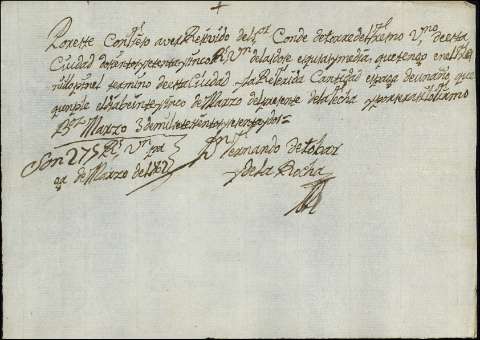 +
Por este Confieso aver Resevido del Sr. Conde de torre del fresno Vno. de esta
Ciudad dosentos y setenta y sinco Rs. Vn. de las dose espuertas y media, que tengo en el
termino de esta Ciudad y la Referida Cantidad es paga de un año que
cumple el dia beinte y sinco de Marzo del presente de la fecha y por verdad lo firmo
Marzo 3 de mil setesientos y setenta y dos =
Son 275 Rs. Vn. pa
ga de Marzo de 
Dn. Fernando de tobar
y de la Rocha